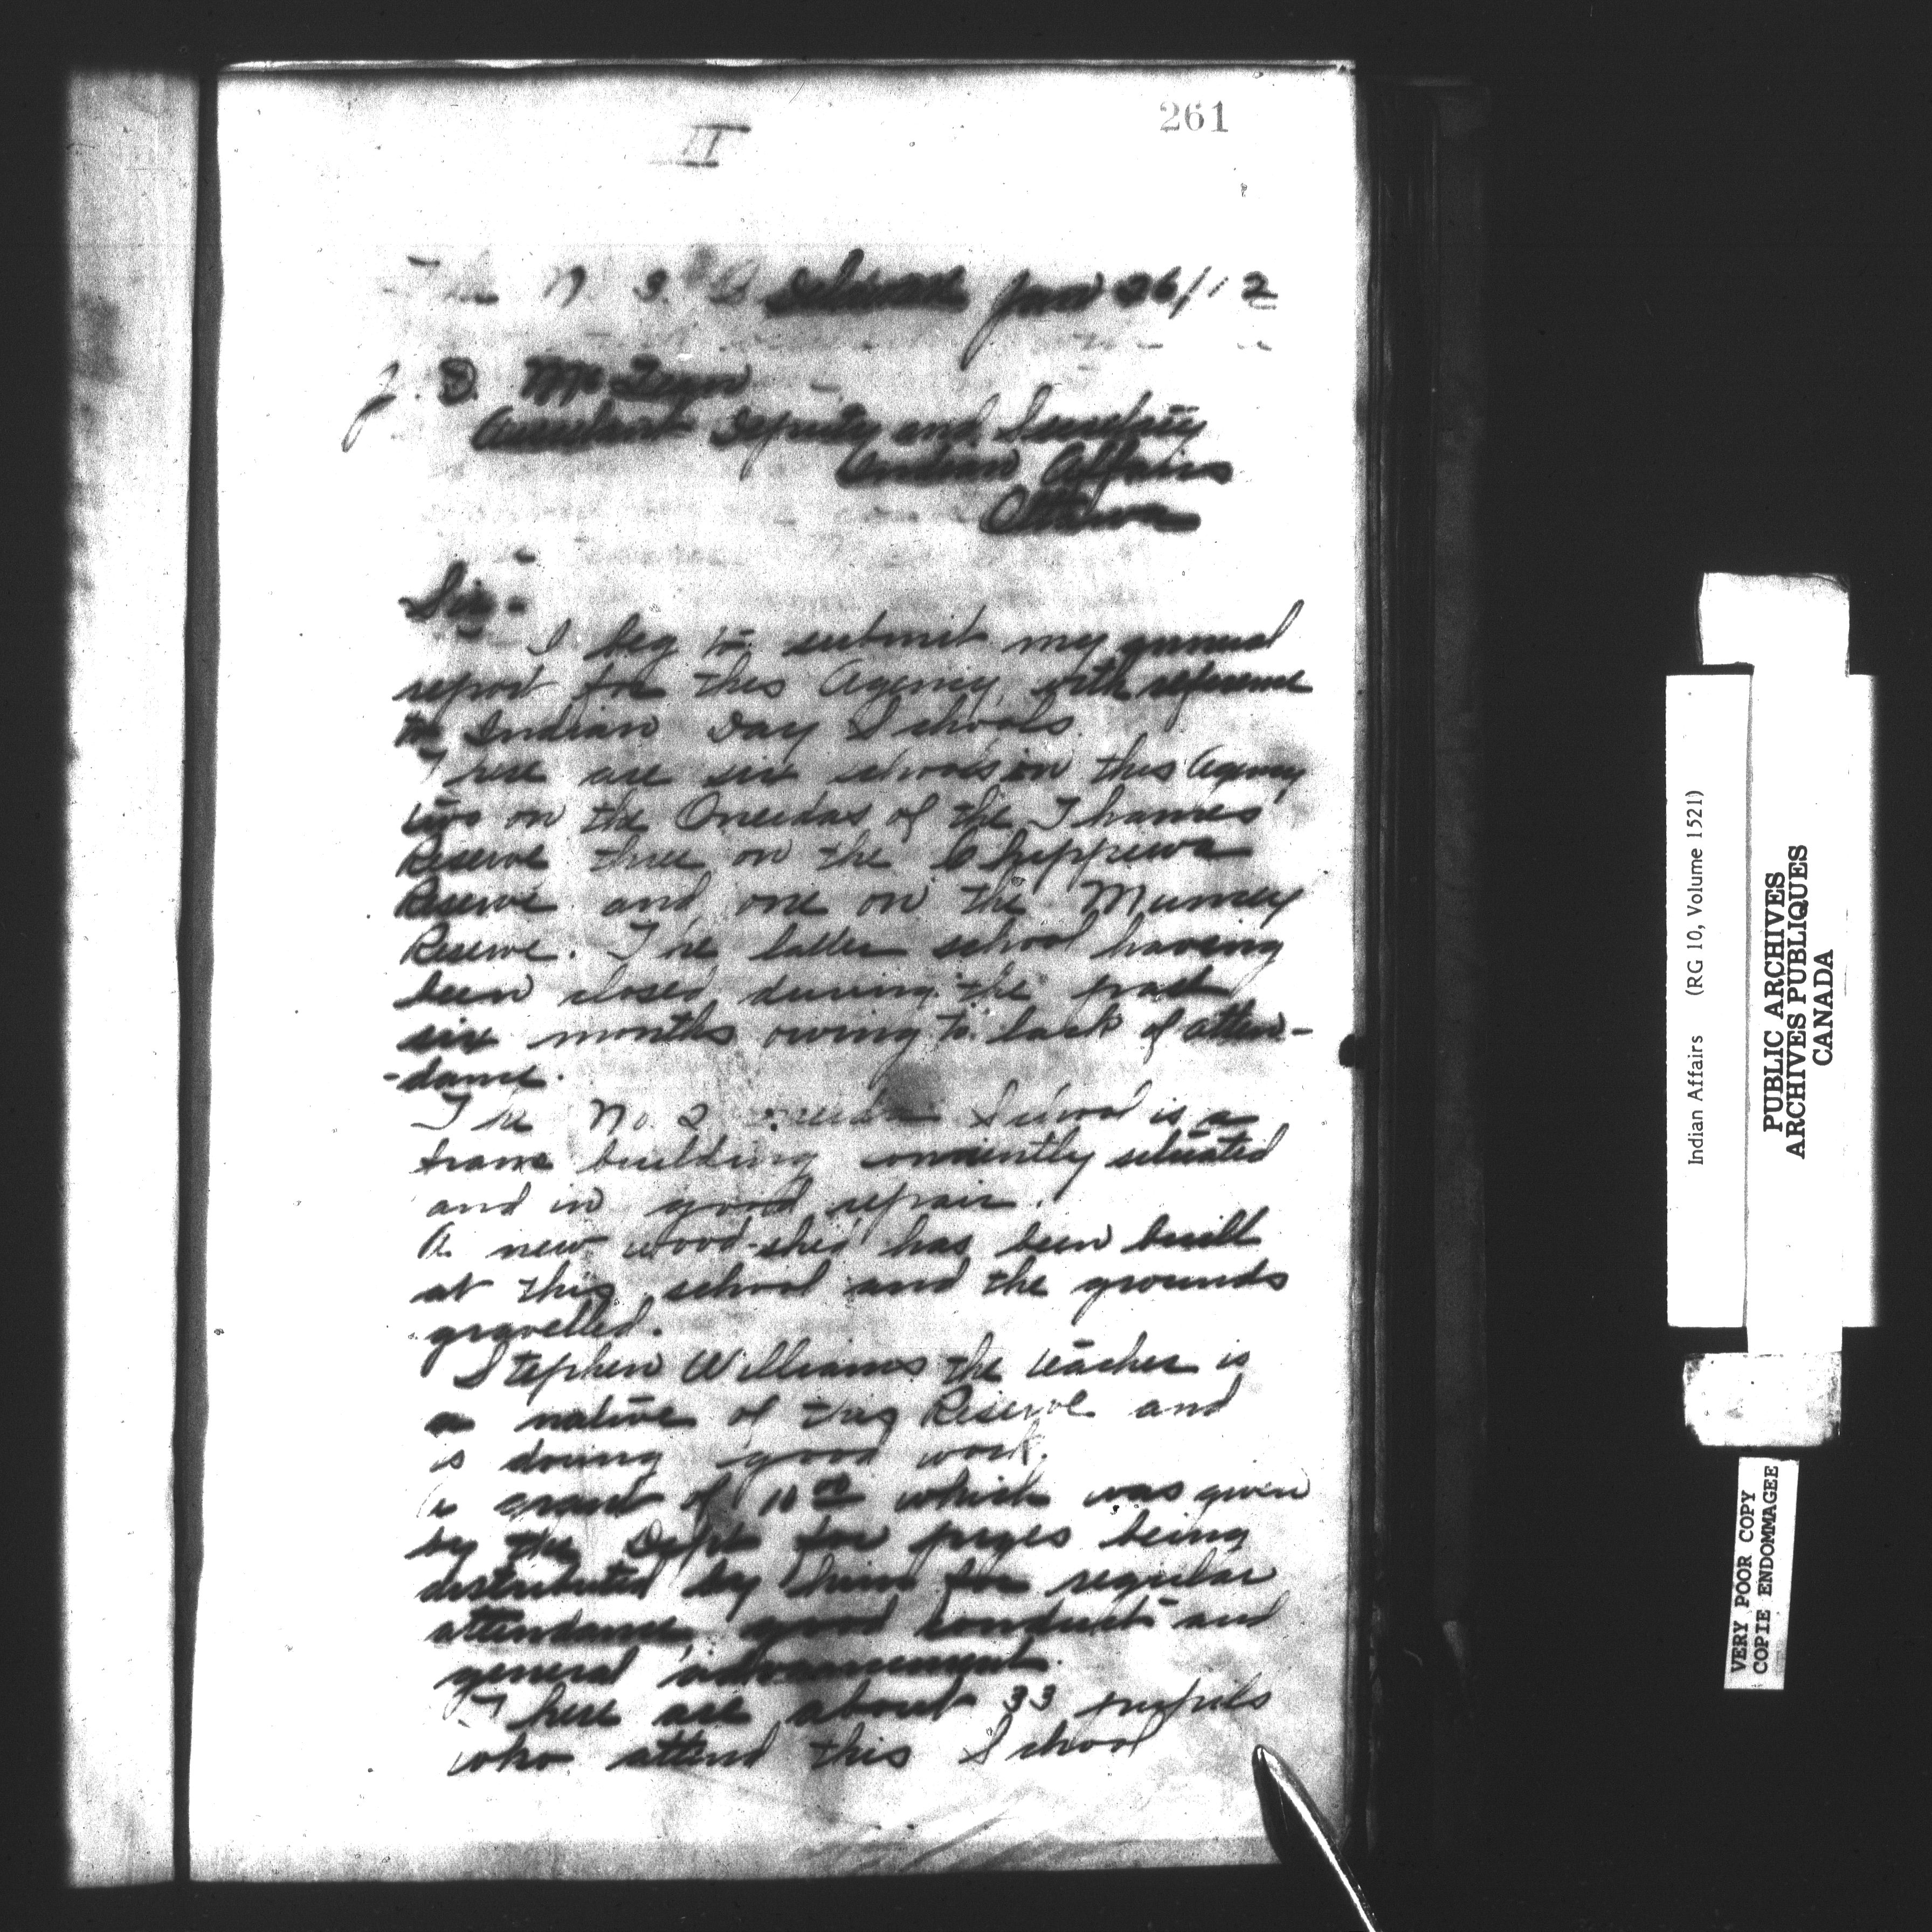 261
II
The N 3 Jan 26/12
J. D. McLean
Assistant Deputy and Secretary
Indian Affairs
Ottawa
Sir-
I beg to submit my annual
report for this Agency, with reference
to Indian Day Schools.
There are six schools on this Agency
two on the Oneidas of the Thames
Reserve three on the Chippewa
Reserve and one on the Muncey
Reserve. The latter school having
been closed during the past
six months owing to lack of atten-
-dance.
The No. 2 Oneida School is a
frame building conviently situated
and in good repair.
A new wood-shed has been built
at this school and the grounds
gravelled.
Stephen Williams the teacher is
a native of this Reserve and
is doing good work.
a grant of 10 00 which was given
by the Dept for prizes being
distributed by him for regular
attendance good conduct and
general advancement.
There are about 33 pupils
who attend this School
Indian Affairs (RG 10, Volume 1521)
PUBLIC ARCHIVES
ARCHIVES PUBLIQUES
CANADA
VERY POOR COPY
COPIE ENDOMMAGEE